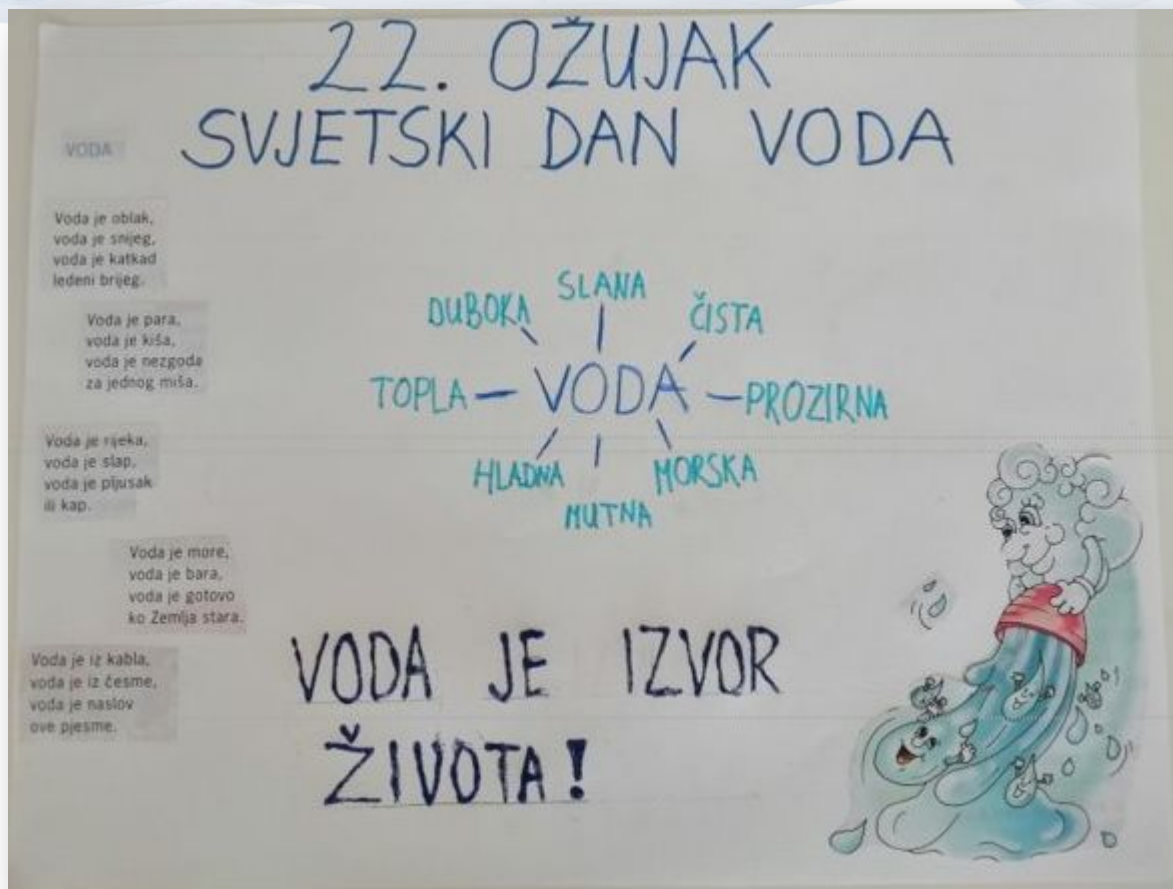 22. OŽUJAK
SVJETSKI DAN VODA
VODA
Voda je oblak,
voda je snijeg,
voda je katkad
ledeni brijeg.
Voda je para,
voda je kiša,
voda je nezgoda
za jednog miša.
Voda je rijeka,
voda je slap,
voda je pljusak
ili kap.
Voda je more,
voda je bara,
voda je gotovo
ko Zemlja stara.
Voda je iz kabla,
voda je iz česme,
voda je naslov
ove pjesme.
SLANA
DUBOKA
ČISTA
TOPLA – VODA – PROZIRNA
HLADNA
MORSKA
MUTNA
VODA JE IZVOR
ŽIVOTA!